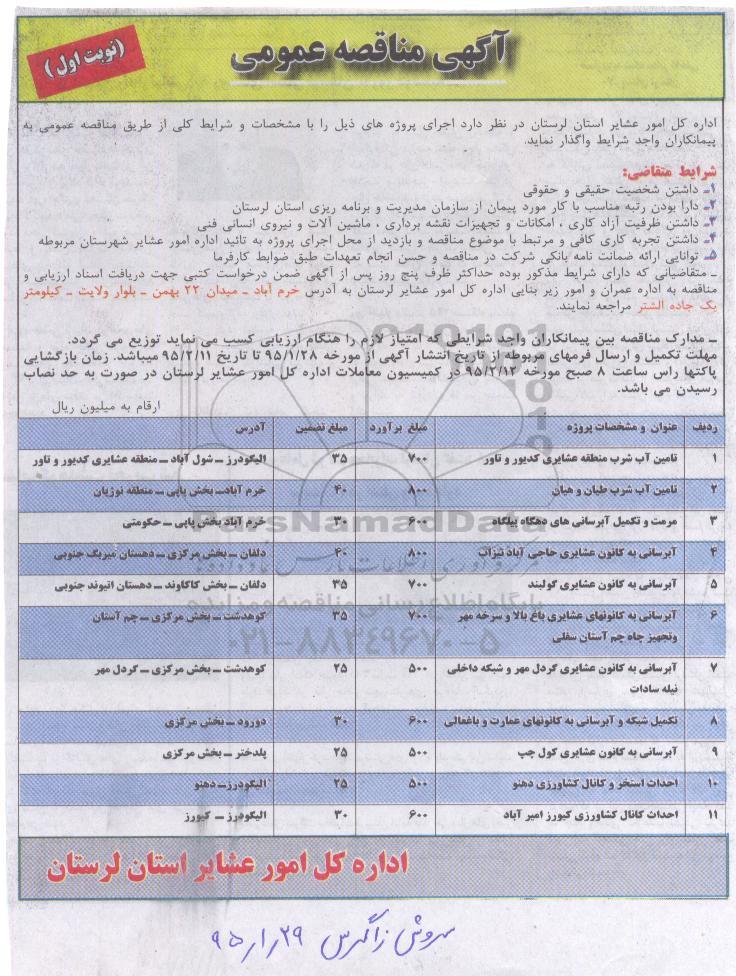 آگهی مناقصه عمومی
(نوبت اول)
اداره کل امور عشایر استان لرستان در نظر دارد اجرای پروژه های ذیل را با مشخصات و شرایط کلی از طریق مناقصه عمومی به
پیمانکاران واجد شرایط واگذار نماید.
شرایط متقاضی:
۱ـ داشتن شخصیت حقیقی و حقوقی
۲ـ دارا بودن رتبه مناسب با کار مورد پیمان از سازمان مدیریت و برنامه ریزی استان لرستان
۳ـ داشتن ظرفیت آزاد کاری ، امکانات و تجهیزات نقشه برداری ، ماشین آلات و نیروی انسانی فنی
۴ـ داشتن تجربه کاری کافی و مرتبط با موضوع مناقصه و بازدید از محل اجرای پروژه به تائید اداره امور عشایر شهرستان مربوطه
۵ـ توانایی ارائه ضمانت نامه بانکی شرکت در مناقصه و حسن انجام تعهدات طبق ضوابط کارفرما
ـ متقاضیانی که دارای شرایط مذکور بوده حداکثر ظرف پنج روز پس از آگهی ضمن درخواست کتبی جهت دریافت اسناد ارزیابی و
مناقصه به اداره عمران و امور زیر بنایی اداره کل امور عشایر لرستان به آدرس خرم آباد ـ میدان ۲۲ بهمن ـ بلوار ولایت ـ کیلومتر
یک جاده الشتر مراجعه نمایند.
ـ مدارک مناقصه بین پیمانکاران واجد شرایطی که امتیاز لازم را هنگام ارزیابی کسب می نماید توزیع می گردد.
مهلت تکمیل و ارسال فرمهای مربوطه از تاریخ انتشار آگهی از مورخه ۹۵/۱/۲۸ تا تاریخ ۹۵/۲/۱۱ میباشد. زمان بازگشایی
پاکتها راس ساعت ۸ صبح مورخه ۹۵/۲/۱۲ در کمیسیون معاملات اداره کل امور عشایر لرستان در صورت به حد نصاب
رسیدن می باشد.
ارقام به میلیون ریال
ردیف عنوان و مشخصات پروژه مبلغ برآورد مبلغ تضمین آدرس
۱ تامین آب شرب منطقه عشایری کدیور و تاور ۷۰۰ ۳۵ الیگودرز ـ شول آباد ـ منطقه عشایری کدیور و تاور
۲ تامین آب شرب طیان و هیان ۸۰۰ ۴۰ خرم آباد ـ بخش پاپی ـ منطقه نوژیان
۳ مرمت و تکمیل آبرسانی های دهگاه بیلگاه ۶۰۰ ۳۰ خرم آباد بخش پاپی ـ حکومتی
۴ آبرسانی به کانون عشایری حاجی آباد تیزاب ۸۰۰ ۴۰ دلفان ـ بخش مرکزی ـ دهستان میربگ جنوبی
۵ آبرسانی به کانون عشایری گولبند ۷۰۰ ۳۵ دلفان ـ بخش کاکاوند ـ دهستان اتیوند جنوبی
۶ آبرسانی به کانونهای عشایری باغ بالا و سرخه مهر ۷۰۰ ۳۵ کوهدشت ـ بخش مرکزی ـ چم آستان
وتجهیز چاه چم آستان سفلی
۷ آبرسانی به کانون عشایری گردل مهر و شبکه داخلی ۵۰۰ ۲۵ کوهدشت ـ بخش مرکزی ـ گردل مهر
نیله سادات
۸ تکمیل شبکه و آبرسانی به کانونهای عمارت و باغغالی ۶۰۰ ۳۰ دورود ـ بخش مرکزی
۹ آبرسانی به کانون عشایری کول چپ ۵۰۰ ۲۵ پلدختر ـ بخش مرکزی
۱۰ احداث استخر و کانال کشاورزی دهنو ۵۰۰ ۲۵ الیگودرز ـ دهنو
۱۱ احداث کانال کشاورزی کیورز امیر آباد ۶۰۰ ۳۰ الیگودرز ـ کیورز
اداره کل امور عشایر استان لرستان
سروش زاگرس ۹۵/۱/۲۹
ParsNamadData
پایگاه اطلاع رسانی مناقصه و مزایده
۰۲۱-۸۸۳۴۹۶۷۰-۵